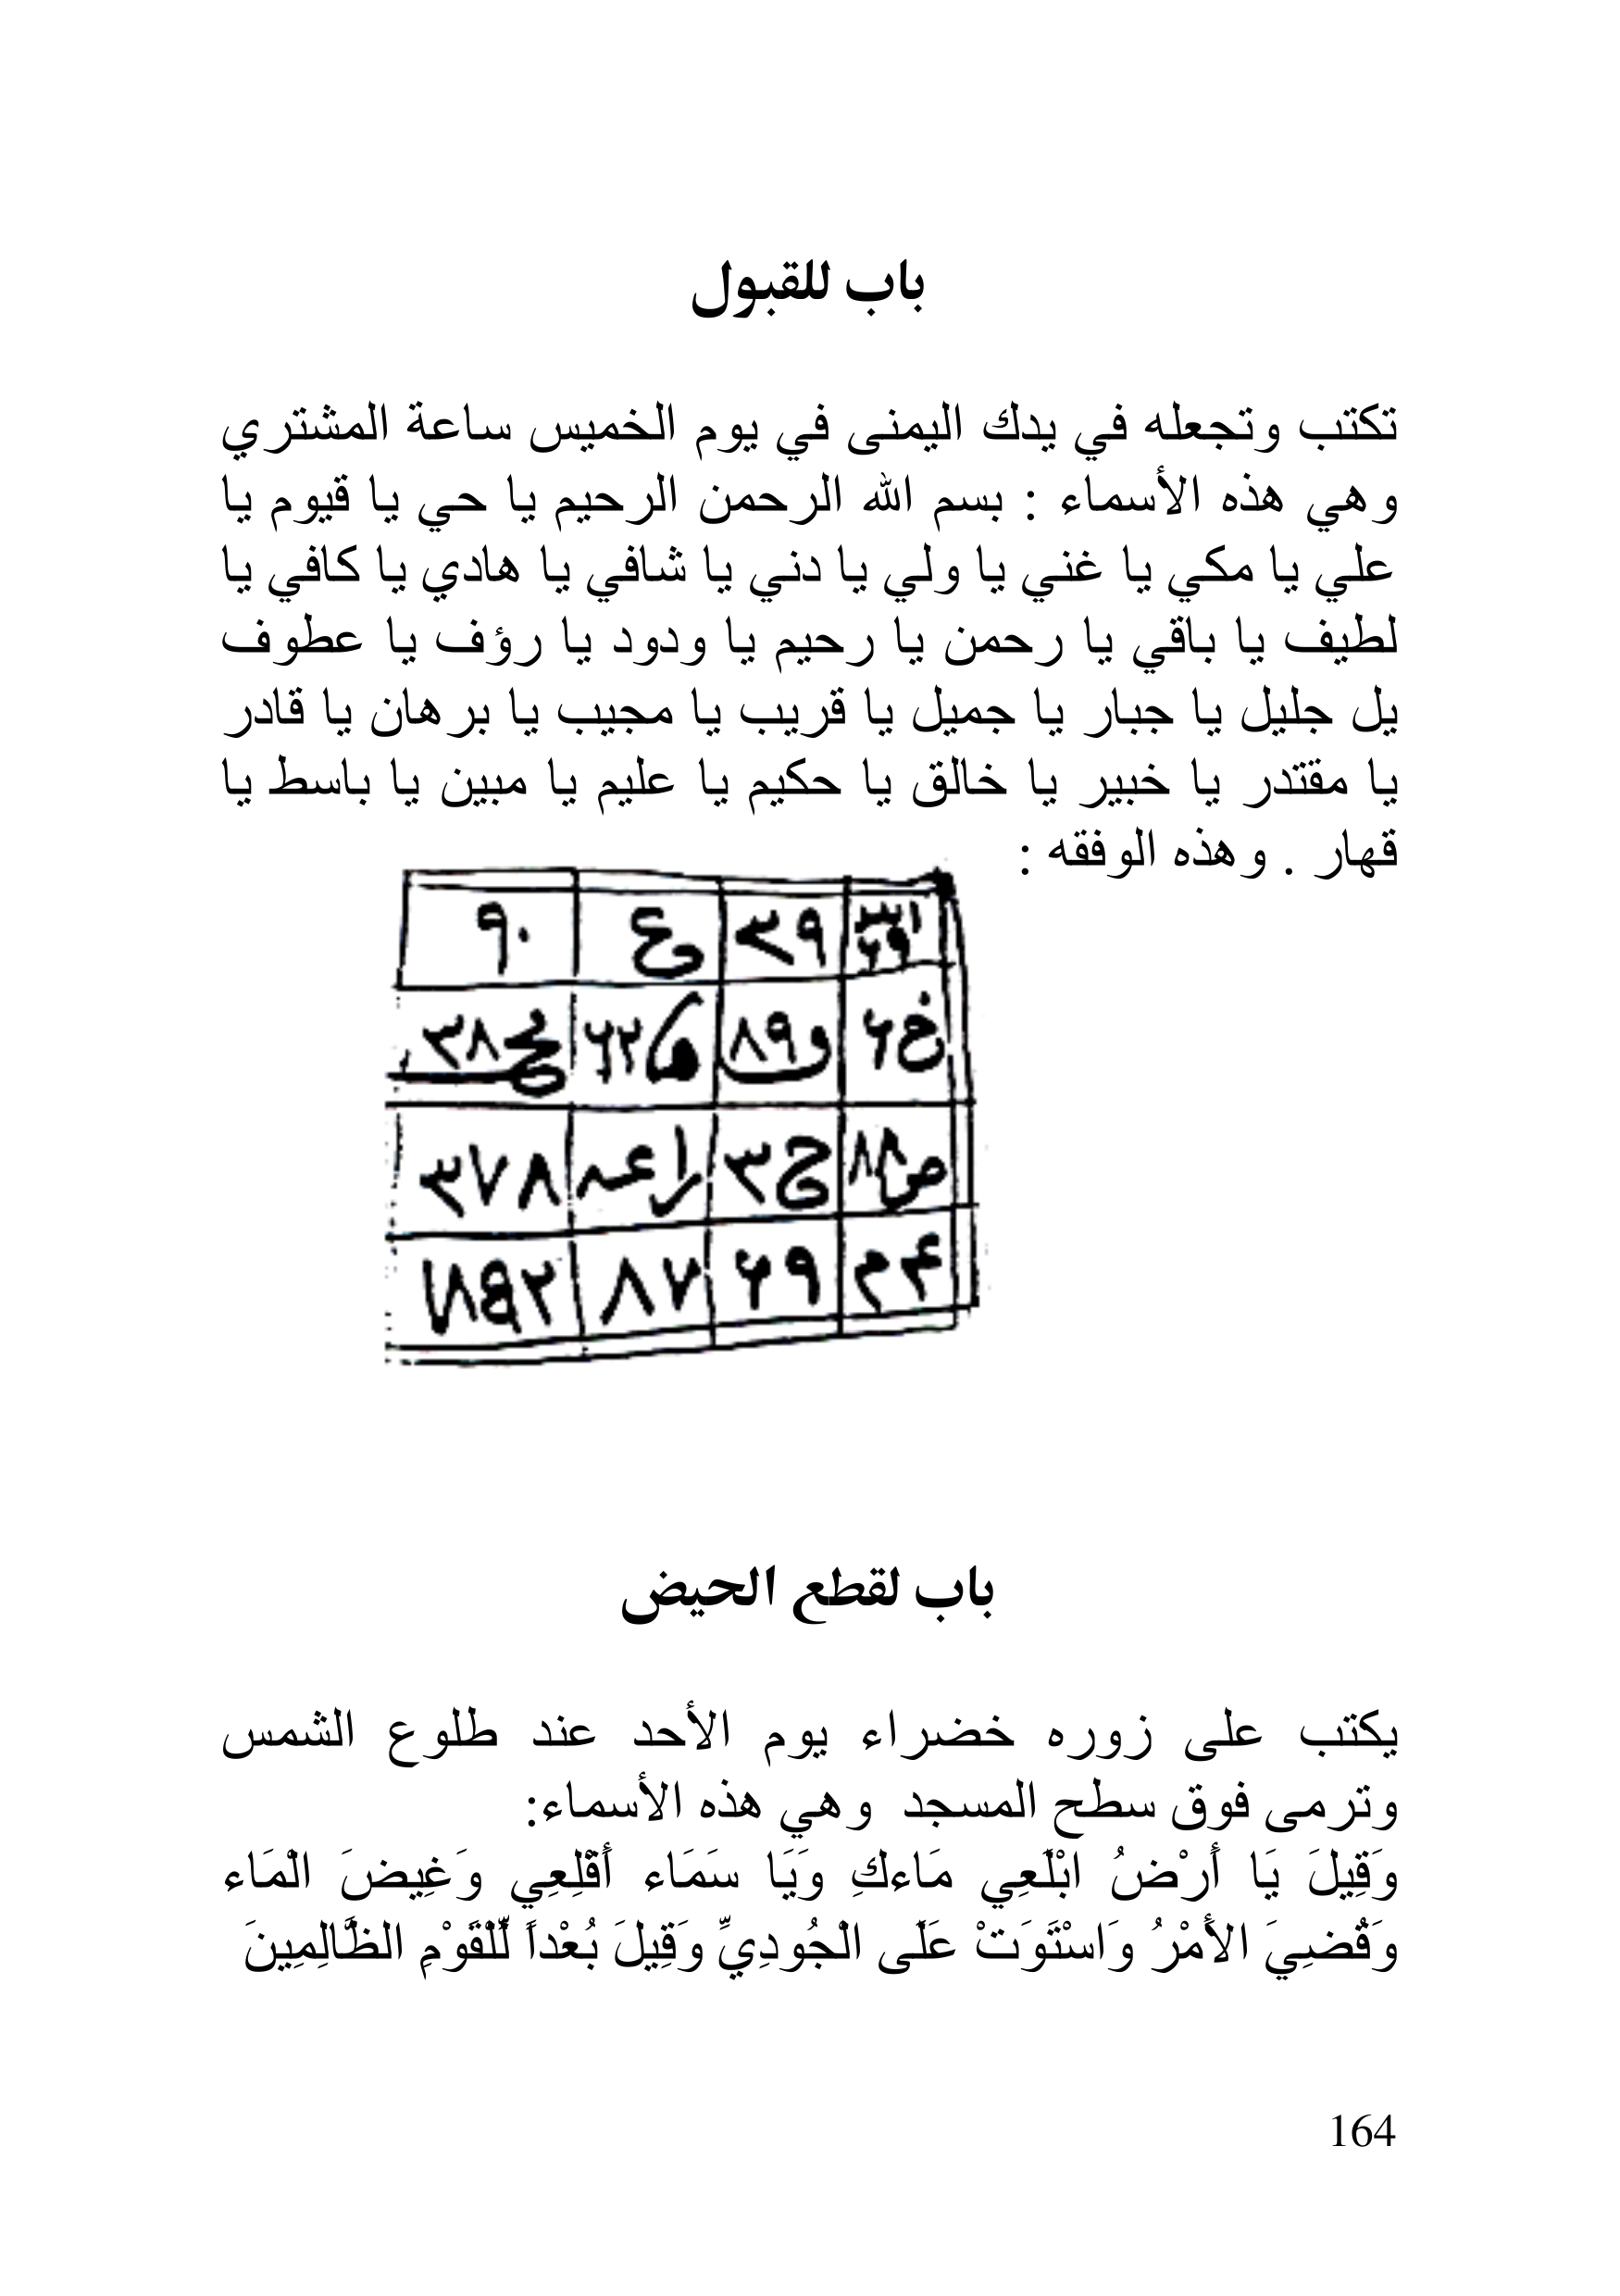 باب للقبول
تكتب وتجعله في يدك اليمنى في يوم الخميس ساعة المشتري
وهي هذه الأسماء : بسم الله الرحمن الرحيم يا حي يا قيوم يا
علي يا مكي يا غني يا ولي يا دني يا شافي يا هادي يا كافي يا
لطيف يا باقي يا رحمن يا رحيم يا ودود يا رؤف يا عطوف
يل جليل يا جبار يا جميل يا قريب يا مجيب يا برهان يا قادر
يا مقتدر يا خبير يا خالق يا حكيم يا عليم يا مبين يا باسط يا
قهار . وهذه الوفقه :
٣٩ وع ٩٠
و٨٩ ٣٨
ح٣ ٣٧٨
٦٩ ٨٧
باب لقطع الحيض
يكتب على زوره خضراء يوم الأحد عند طلوع الشمس
وترمى فوق سطح المسجد وهي هذه الأسماء:
وَقِيلَ يَا أَرْضُ ابْلَعِي مَاءكِ وَيَا سَمَاء أَقْلِعِي وَغِيضَ الْمَاء
وَقُضِيَ الأَمْرُ وَاسْتَوَتْ عَلَى الْجُودِيِّ وَقِيلَ بُعْداً لِّلْقَوْمِ الظَّالِمِينَ
164